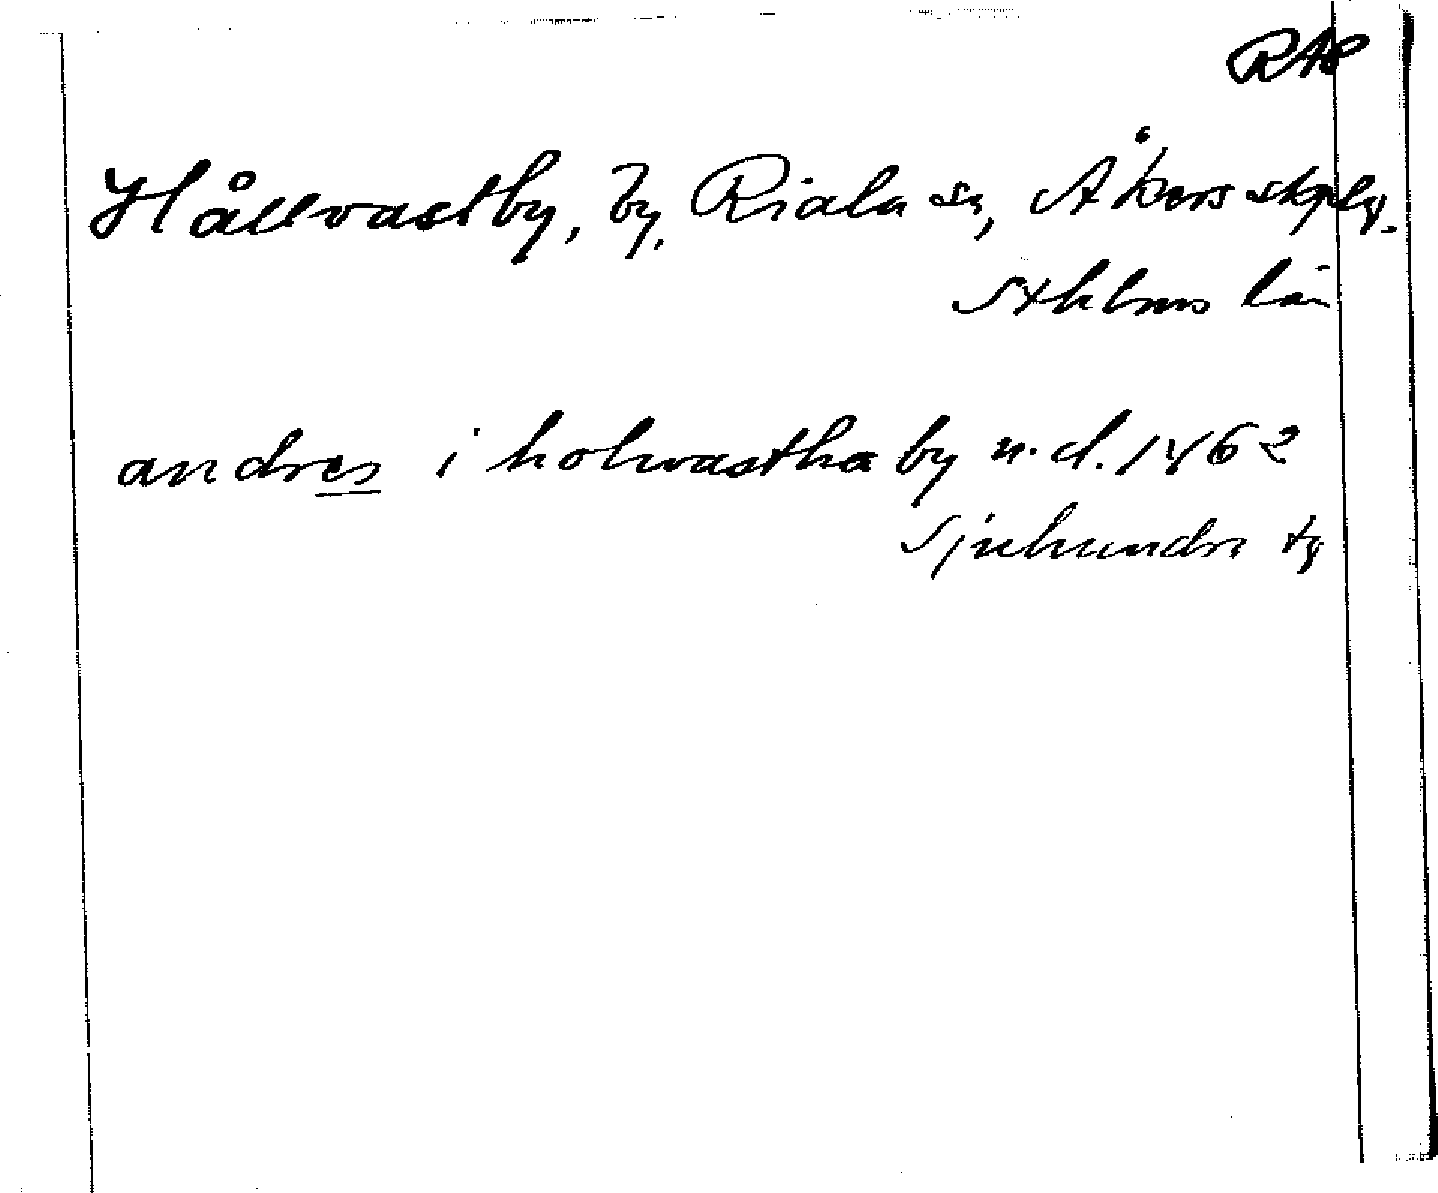 RAp
Hållvastby, by, Riala sn, Åkers skplg.
Sthlms län
andres i holwastha by u.d. 1462
Sjuhundra tg